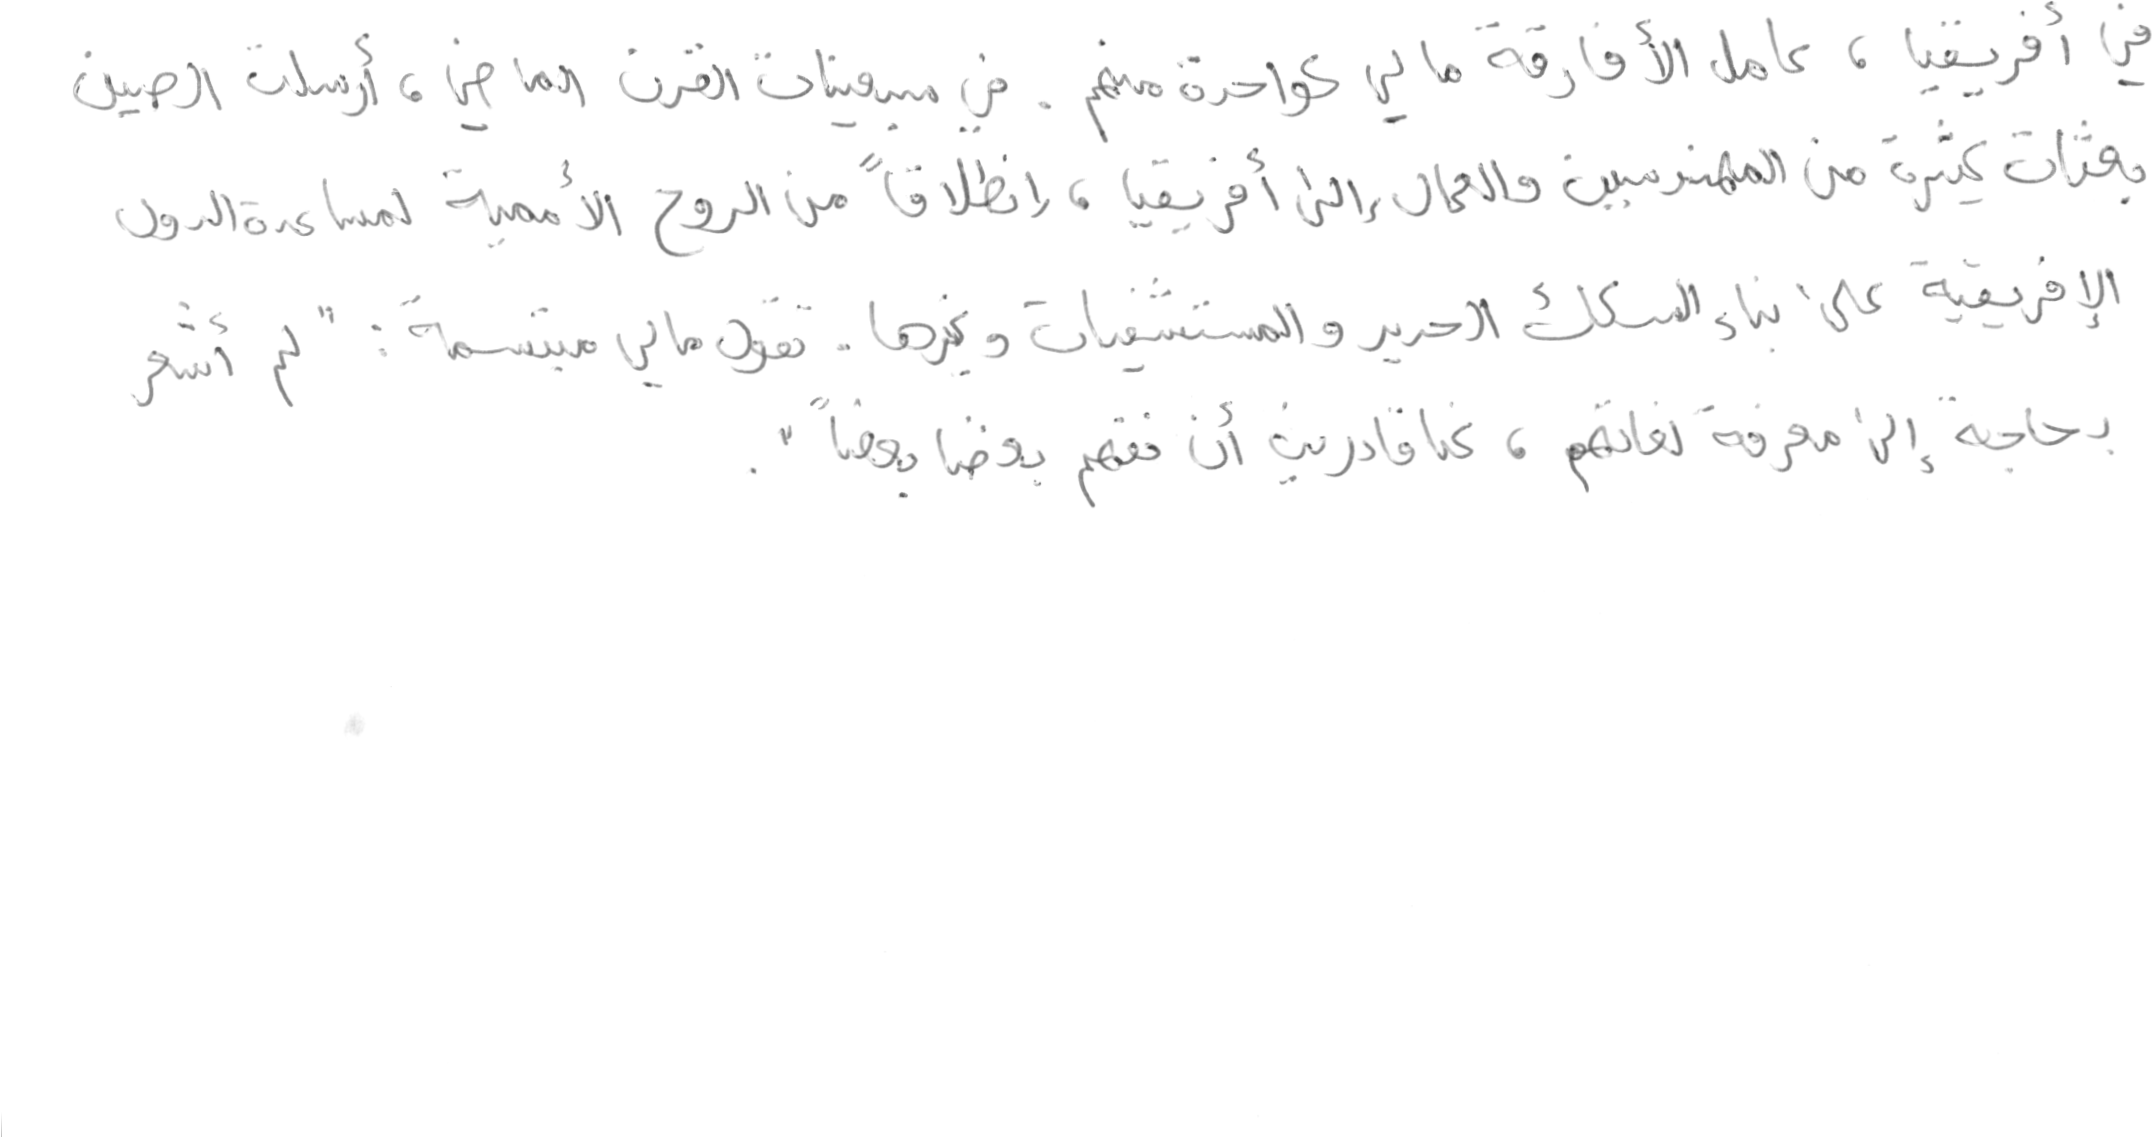 في أفريقيا ، عامل الأفارقة مالي كواحدة منهم . في سبعينات القرن الماضي ، أرسلت الصين
بعثات كثيرة من المهندسين والعمال إلى أفريقيا ، إنطلاقاً من الروح الأممية لمساعدة الدول
الإفريقية على بناء السكك الحديد والمستشفيات وغيرها . تقول مالي مبتسمة : " لم أشعر
بحاجة إلى معرفة لغاتهم ، كنا قادرين أن نفهم بعضنا بعضاً " .